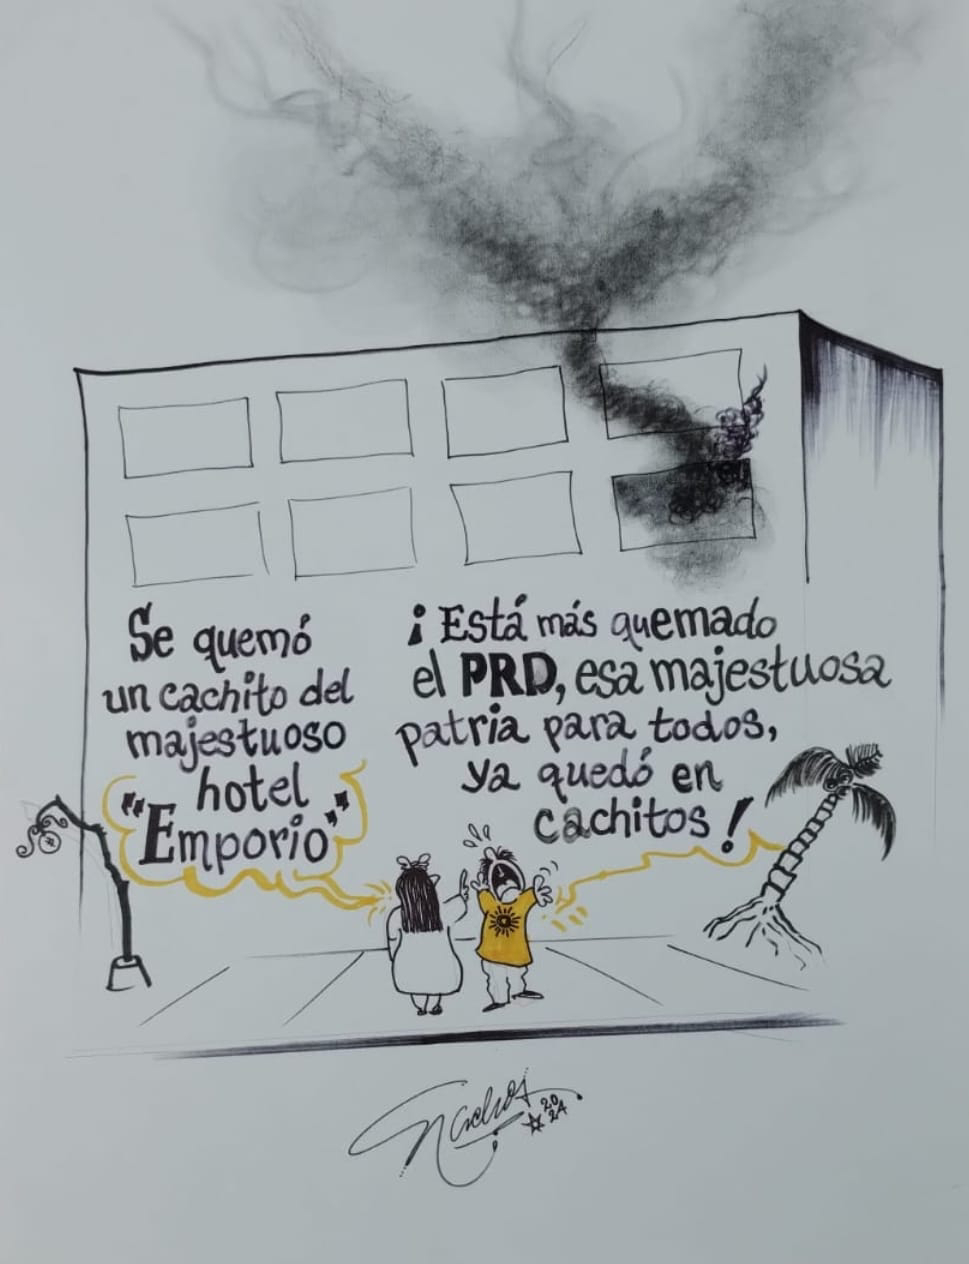 Se quemó
un cachito del
majestuoso
hotel
"Emporio"
¡Está más quemado
el PRD, esa majestuosa
patria para todos,
ya quedó en
cachitos!
Nachos
2024